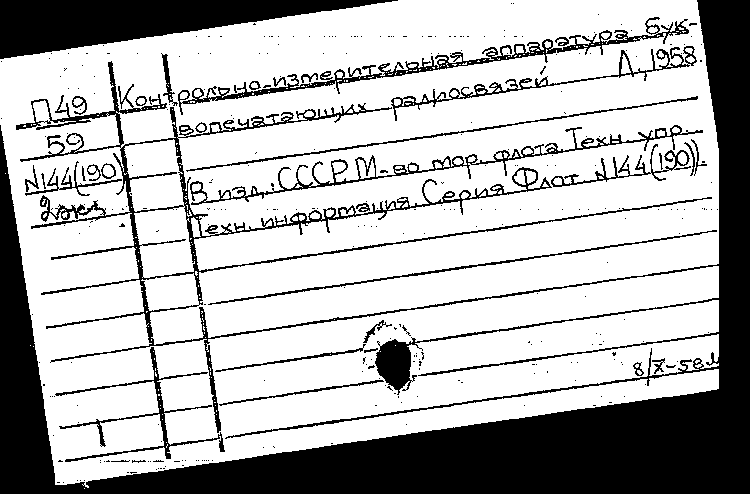 П49
59
N144(190)
2 экз
Контрольно-измерительная аппаратура бук-
вопечатающих радиосвязей. Л., 1958.
(В изд.: СССР. М-во мор. флота. Техн. упр.
Техн. информация. Серия Флот. N144(190)).
8/X-58
1